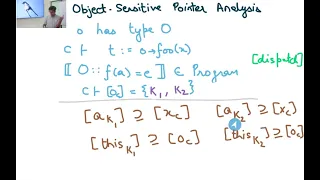 Object-Sensitive Pointer Analysis
o has type O
c ⊢ t := o→foo(x)
⟦ O::f(a) = e ⟧ ∈ Program
[dispatch]
c ⊢ [o] = {K₁, K₂}
[a_K₁] ⊇ [x_c] [a_K₂] ⊇ [x_c]
[this_K₁] ⊇ [o_c] [this_K₂] ⊇ [o_c]